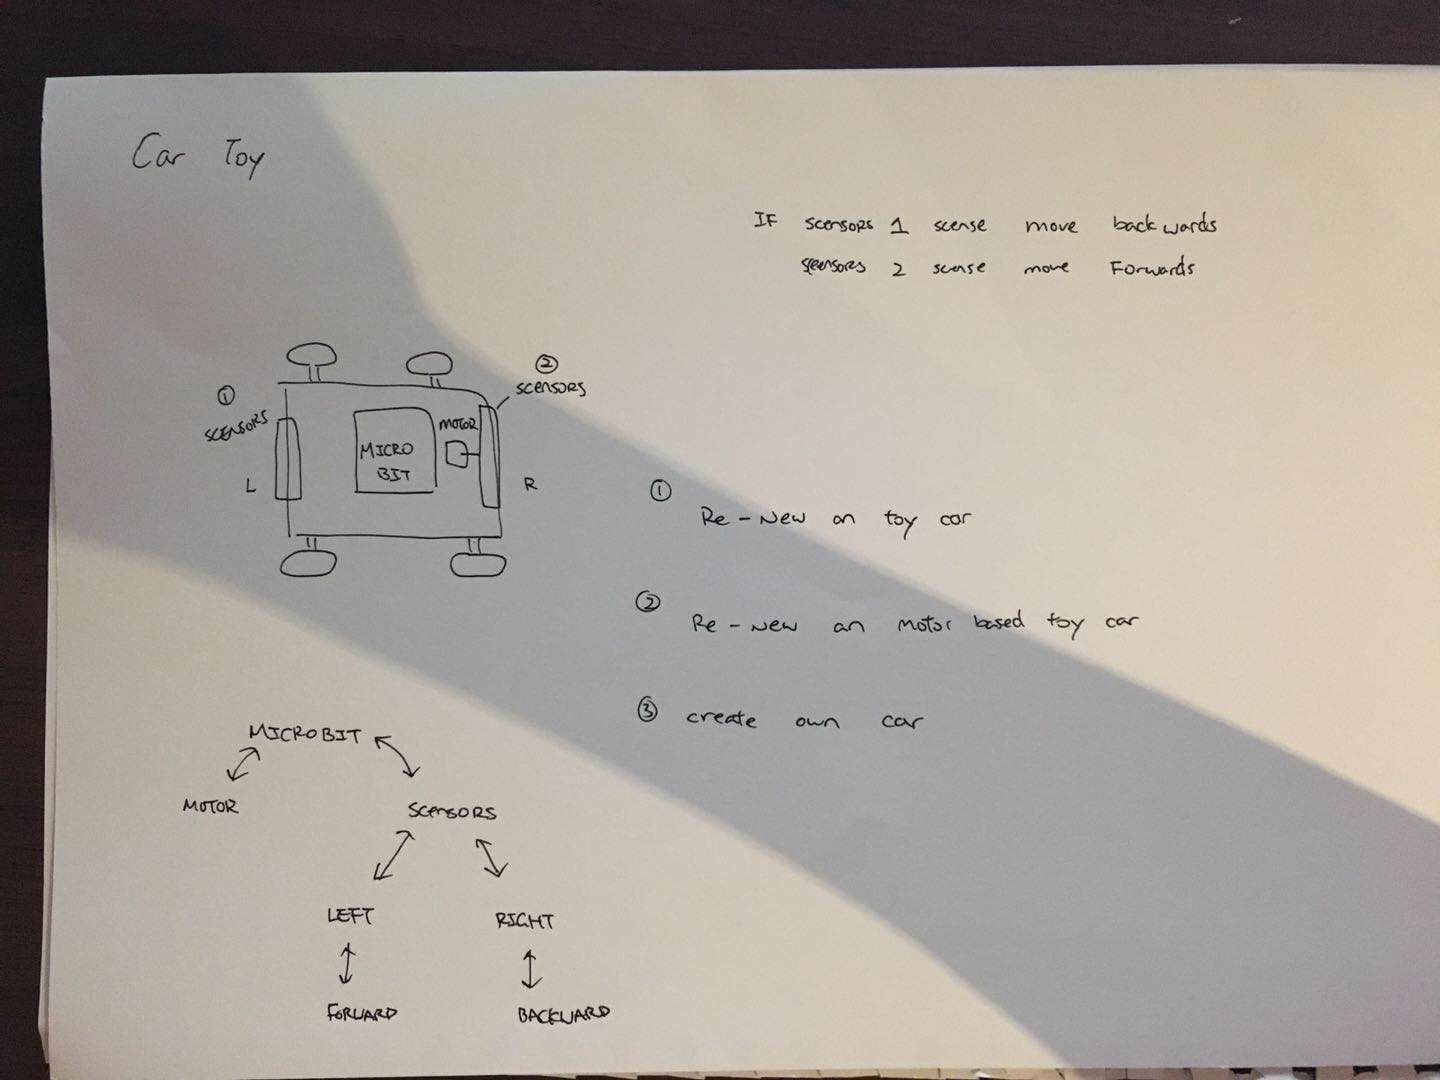 Car Toy
IF scensors 1 scense move backwards
scensors 2 scense move Forwards
①
SCENSORS
L
②
SCENSORS
MOTOR
MICRO
BIT
R
①
Re-New an toy car
②
Re-New an motor based toy car
③ create own car
MICROBIT
MOTOR
SCENSORS
LEFT
RIGHT
FORWARD
BACKWARD